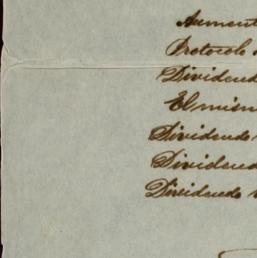 Aument
Protocolo
Dividendo
El mism
Dividendo
Dividend
Dividendo